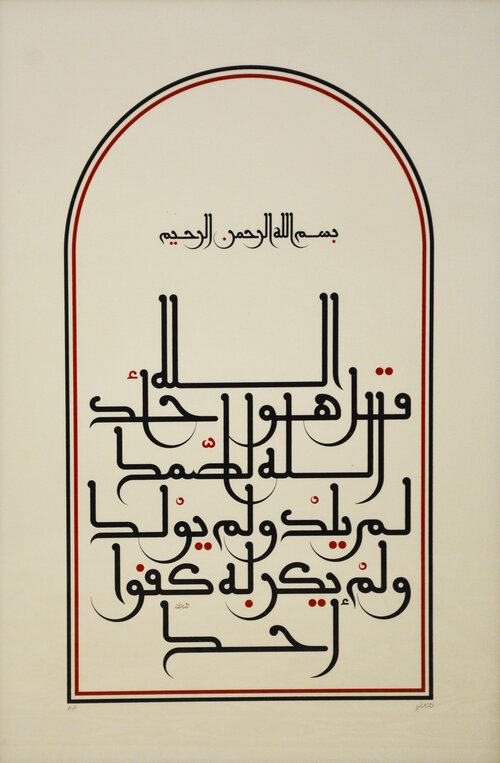 بسم الله الرحمن الرحيم
قل هو الله أحد
الله الصّمد
لم يلدْ ولم يوْلد
ولمْ يكن له كفوا
أحد